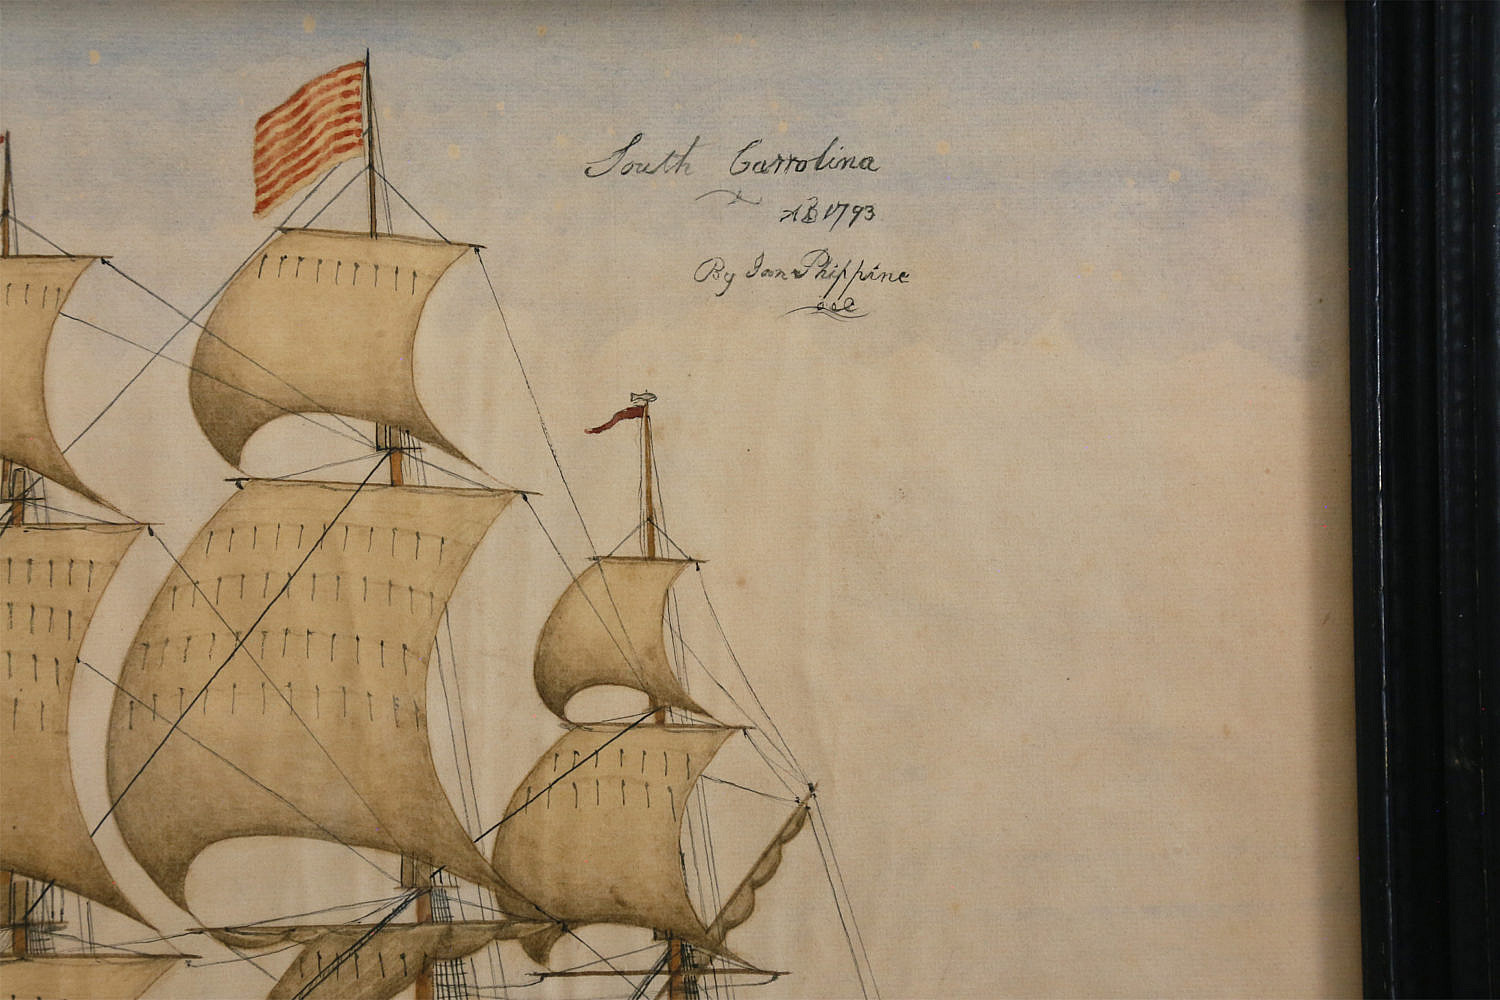 South Carrolina
AD 1793
By Jon Phippine